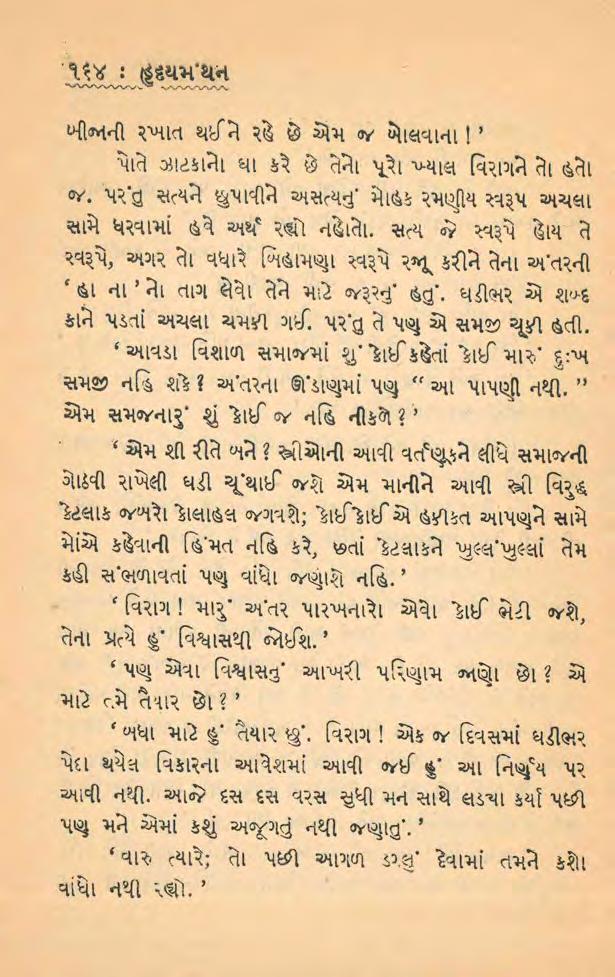 ૧૬૪ : હૃદયમંથન
બીજાની રખાત થઈને રહે છે એમ જ બોલવાના ! ’
પોતે ઝાટકાનો ઘા કરે છે તેનો પૂરો ખ્યાલ વિરાગને તો હતો
જ. પરંતુ સત્યને છુપાવીને અસત્યનું મોહક રમણીય સ્વરૂપ અચલા
સામે ધરવામાં હવે અર્થ રહ્યો નહોતો. સત્ય જે સ્વરૂપે હોય તે
સ્વરૂપે, અગર તો વધારે બિહામણા સ્વરૂપે રજૂ કરીને તેના અંતરની
‘ હા ના ’નો તાગ લેવો તેને માટે જરૂરનું હતું. ઘડીભર એ શબ્દ
કાને પડતાં અચલા ચમકી ગઈ. પરંતુ તે પણ એ સમજી ચૂકી હતી.
‘ આવડા વિશાળ સમાજમાં શું કોઈ કહેતાં કોઈ મારું દુઃખ
સમજી નહિ શકે ? અંતરના ઊંડાણમાં પણ “ આ પાપણી નથી. ”
એમ સમજનારું શું કોઈ જ નહિ નીકળે ? ’
‘ એમ શી રીતે બને ? સ્ત્રીઓની આવી વર્તણૂકને લીધે સમાજની
ગોઠવી રાખેલી ઘડી ચૂંથાઈ જશે એમ માનીને આવી સ્ત્રી વિરુદ્ધ
કેટલાક જબરો કોલાહલ જગવશે; કોઈ કોઈ એ હકીકત આપણને સામે
મોંએ કહેવાની હિંમત નહિ કરે, છતાં કેટલાકને ખુલ્લંખુલ્લાં તેમ
કહી સંભળાવતાં પણ વાંધો જણાશે નહિ. ’
‘ વિરાગ ! મારું અંતર પારખનારો એવો કોઈ ભેટી જશે,
તેના પ્રત્યે હું વિશ્વાસથી જોઈશ. ’
‘ પણ એવા વિશ્વાસનું આખરી પરિણામ જાણો છો ? એ
માટે તમે તૈયાર છો ? ’
‘ બધા માટે હું તૈયાર છું. વિરાગ ! એક જ દિવસમાં ઘડીભર
પેદા થયેલ વિકારના આવેશમાં આવી જઈ હું આ નિર્ણય પર
આવી નથી. આજે દસ દસ વરસ સુધી મન સાથે લડ્યા કર્યા પછી
પણ મને એમાં કશું અજૂગતું નથી જણાતું. ’
‘ વારુ ત્યારે; તો પછી આગળ ડગલું દેવામાં તમને કશો
વાંધો નથી રહ્યો. ’